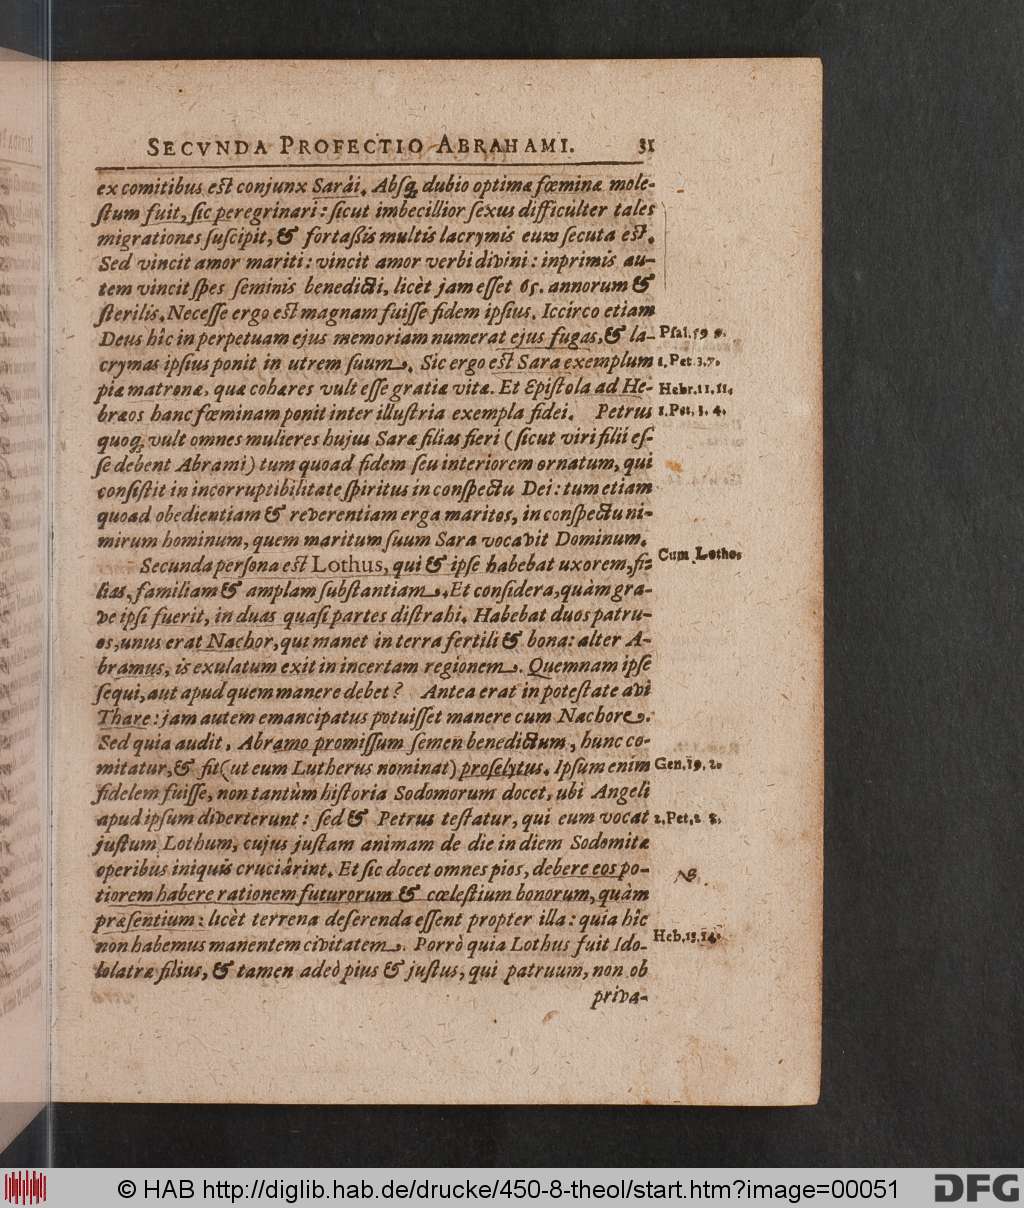 SECVNDA PROFECTIO ABRAHAMI. 31
ex comitibus est conjunx Sarâi. Absq; dubio optimæ fœminæ mole-
ſtum fuit, ſic peregrinari: ſicut imbecillior ſexus difficulter tales
migrationes ſuſcipit, & fortaßis multis lacrymis eum ſecuta eſt.
Sed vincit amor mariti: vincit amor verbi divini: inprimis au-
tem vincit ſpes ſeminis benedicti, licèt jam eſſet 65. annorum &
ſterilis. Neceſſe ergo eſt magnam fuiſſe fidem ipſius. Iccirco etiam
Deus hîc in perpetuam ejus memoriam numerat ejus fugas, & la- Pſal. 59 9.
crymas ipſius ponit in utrem ſuum. Sic ergo eſt Sara exemplum 1. Pet. 3. 7.
piæ matronæ, quæ cohæres vult eſſe gratiæ vitæ. Et Epiſtola ad He- Hebr. 11. 11.
bræos hanc fœminam ponit inter illuſtria exempla fidei. Petrus 1. Pet. 3. 4.
quoq; vult omnes mulieres hujus Saræ filias fieri (ſicut viri filii eſ-
ſe debent Abrami) tum quoad fidem ſeu interiorem ornatum, qui
conſiſtit in incorruptibilitate ſpiritus in conſpectu Dei: tum etiam
quoad obedientiam & reverentiam erga maritos, in conſpectu ni-
mirum hominum, quem maritum ſuum Sara vocavit Dominum.
Secunda perſona eſt Lothus, qui & ipſe habebat uxorem, fi- Cum Lotho.
lias, familiam & amplam ſubſtantiam. Et conſidera, quàm gra-
ve ipſi fuerit, in duas quaſi partes diſtrahi. Habebat duos patru-
os, unus erat Nachor, qui manet in terra fertili & bona: alter A-
bramus, is exulatum exit in incertam regionem. Quemnam ipſe
ſequi, aut apud quem manere debet? Antea erat in poteſtate avi
Thare: jam autem emancipatus potuiſſet manere cum Nachore.
Sed quia audit, Abramo promiſſum ſemen benedictum, hunc co-
mitatur, & fit (ut eum Lutherus nominat) proſelytus. Ipſum enim Gen. 19. 2.
fidelem fuiſſe, non tantùm hiſtoria Sodomorum docet, ubi Angeli
apud ipſum diverterunt: ſed & Petrus teſtatur, qui eum vocat 2. Pet. 2 8.
juſtum Lothum, cujus juſtam animam de die in diem Sodomitæ
operibus iniquis cruciârint. Et ſic docet omnes pios, debere eos po- NB.
tiorem habere rationem futurorum & cœleſtium bonorum, quàm
præſentium: licèt terrena deſerenda eſſent propter illa: quia hîc
non habemus manentem civitatem. Porrò quia Lothus fuit Ido- Heb. 13. 14.
lolatræ filius, & tamen adeò pius & juſtus, qui patruum, non ob
priva-
© HAB http://diglib.hab.de/drucke/450-8-theol/start.htm?image=00051
DFG